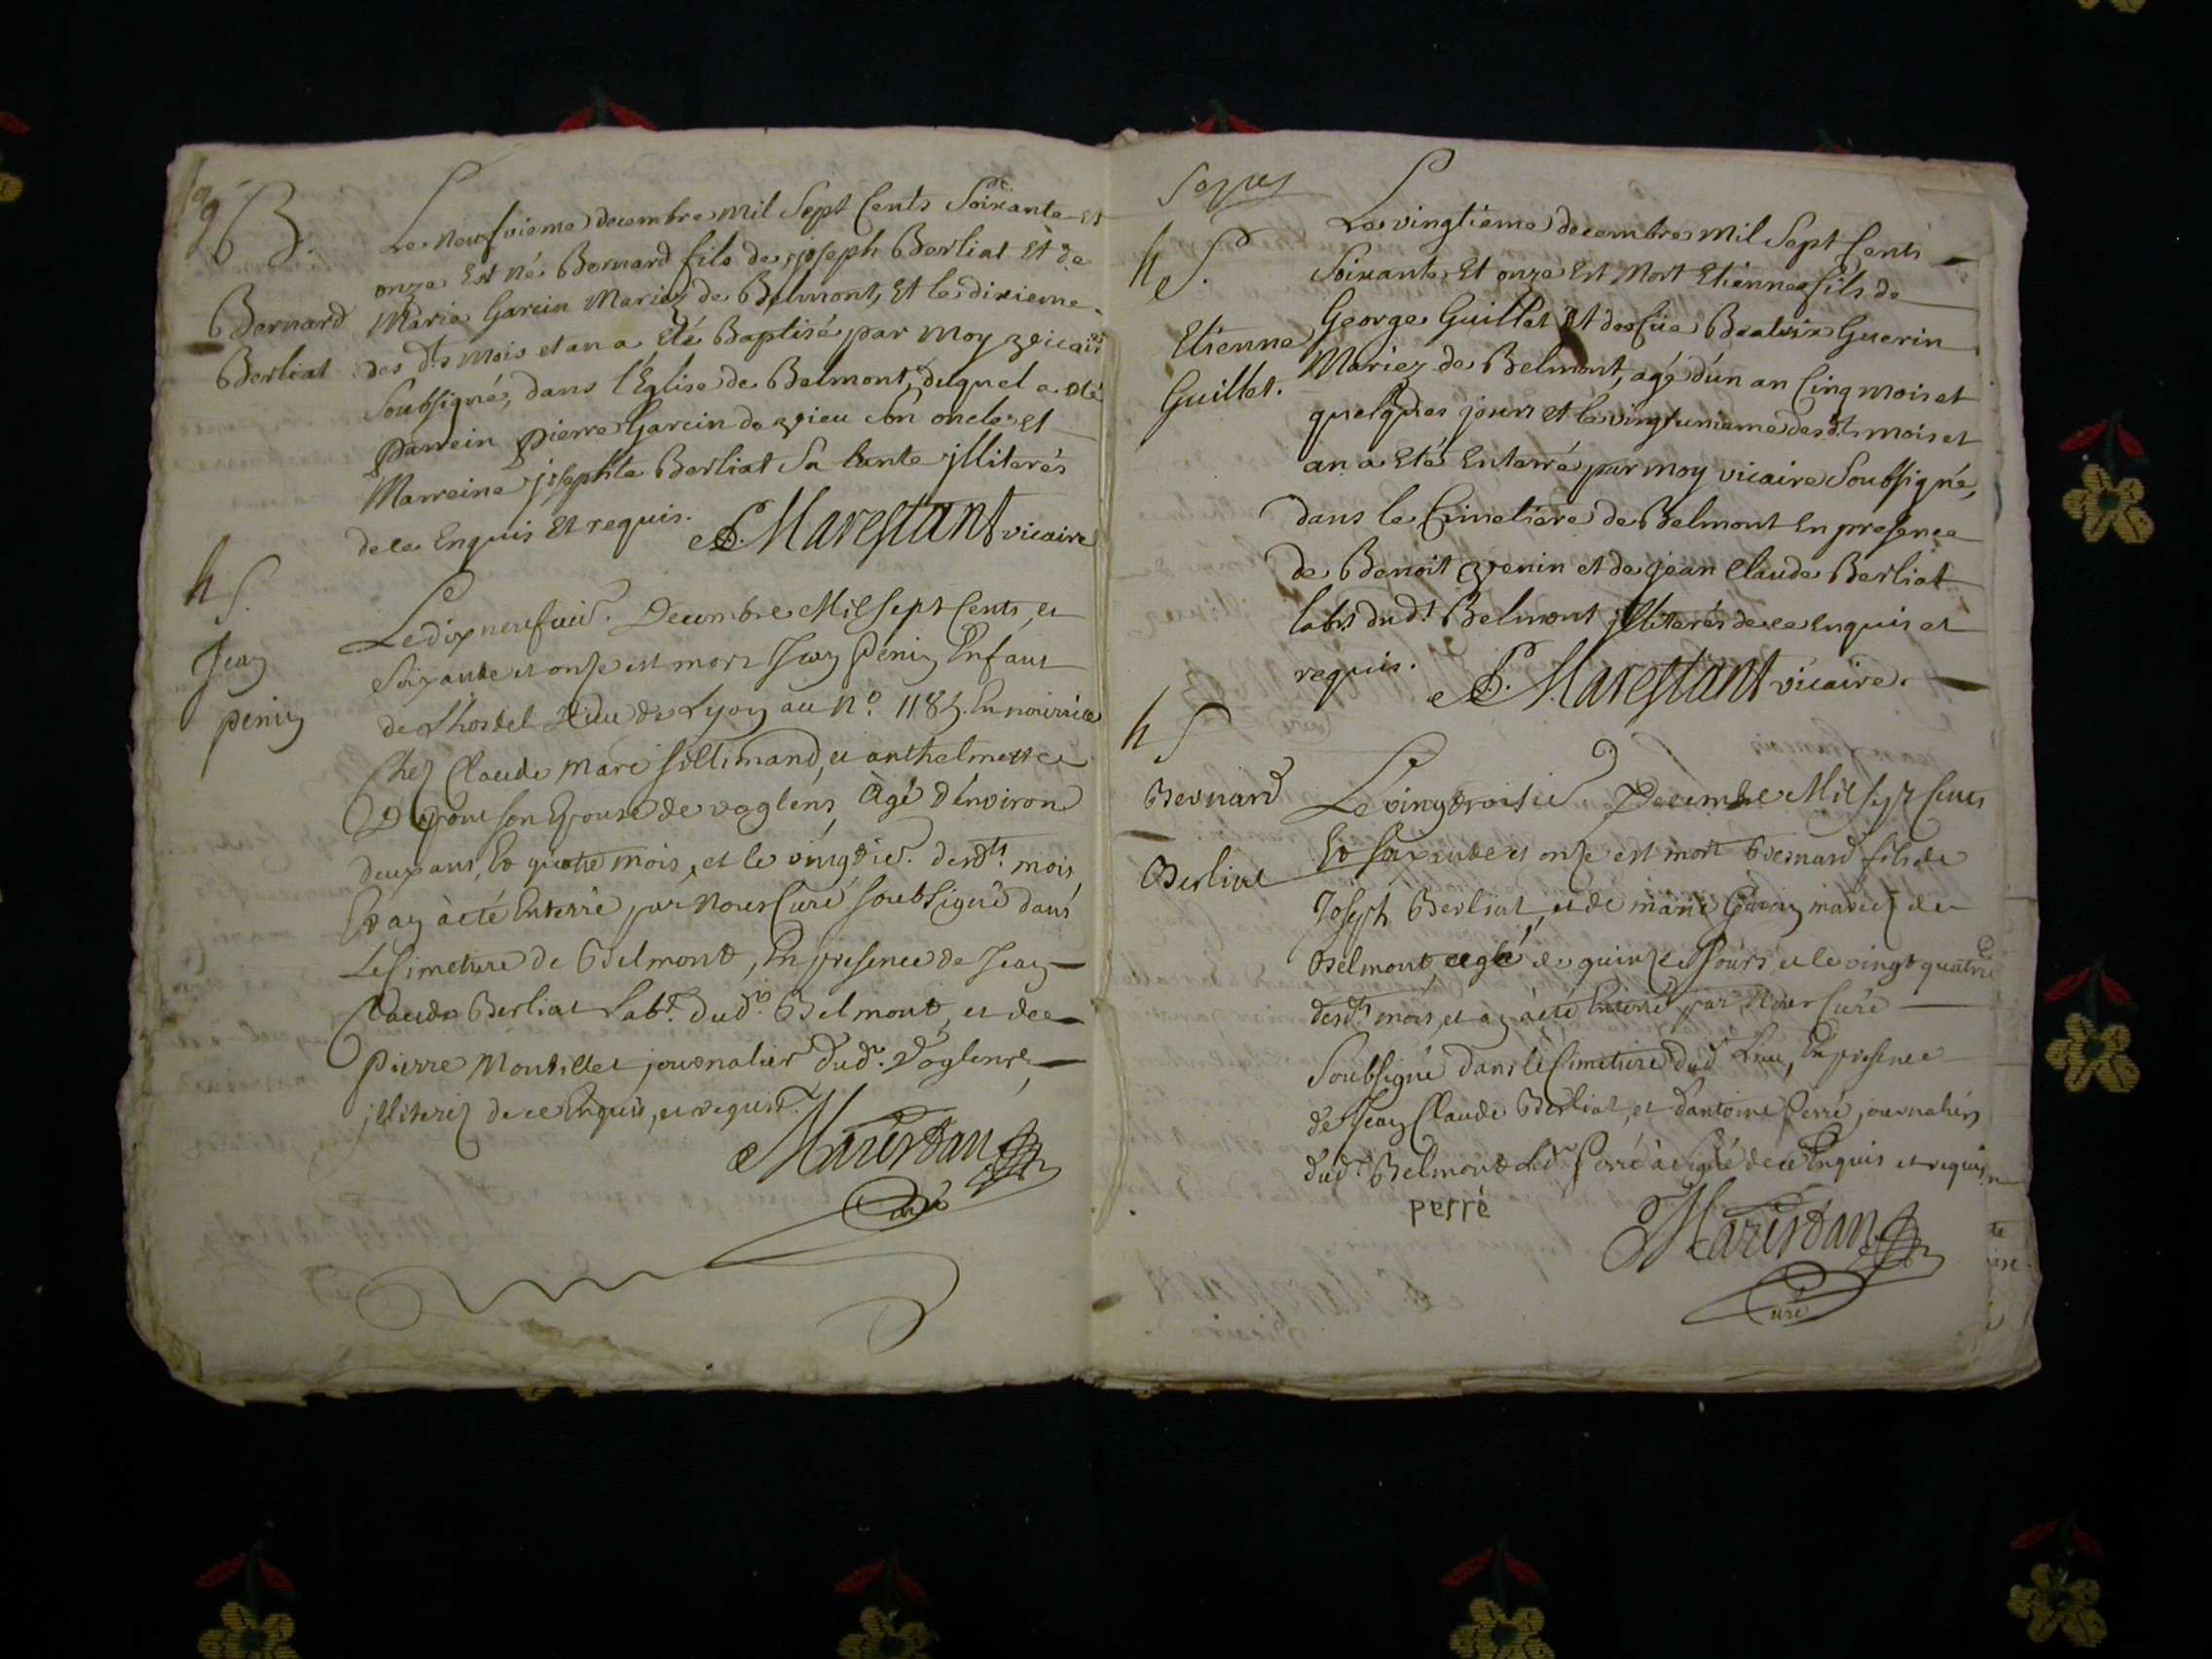 B.
Bernard
Berliat
Le neufvieme decembre mil Sept Cents Soixante et
onze Est né Bernard fils de joseph Berliat Et de
Marie Garcin Mariez de Belmont, Et le dixieme
des dts mois et an a Eté Baptisé par moy vicaire
Soubsigné, dans l'Eglise de Belmont, duquel a eté
parrein pierre Garcin de vieu son oncle et
Marreine josephte Berliat Sa tante jlliterés
de ce Enquis Et requis. Marestant vicaire
h S.
Jean
penin
Le dix neufvie. Decembre Mil sept Cents, et
Soixante et onze est mort Jean Penin Enfant
de L'hostel Dieu de Lyon au no. 1184. En nourrice
Chez Claude Mare Sillimand, et anthelmette
Dupont son Epouse de voglens, Agé d'environ
deux ans, Et quatre mois, et le vingtie. desdts. mois,
Et an à eté Enterré par Nous Curé soubsigné dans
Le Cimetiere de Belmont, En presence de Jean
Claude Berliat Labr. dudt. Belmont, et de
Pierre Montillet journalier dudt. Voglens,
jlliterez de ce Enquis, et requist.
Marestan
Curé
h S.
Etienne
Guillet.
Le vingtieme decembre mil Sept Cents
Soixante Et onze Est Mort Etienne fils de
George Guillet Et de Beatrix Guerin
Mariez de Belmont, agé d'un an Cinq mois et
quelques jours et le vingtunieme des dts mois et
an a Eté Enterré par moy vicaire Soubsigné,
dans le Cimetiere de Belmont En presence
de Benoit venin et de jean Claude Berliat
labrs dudt Belmont jlliterés de ce Enquis et
requis. Marestant vicaire.
h S
Bernard
Berliat
Le vingtroisie Decembre Mil sept Cents
Et soixante et onze est mort Bernard fils de
Joseph Berliat, et de marie Garcin mariez de
Belmont, agé de quinze Jours, et le vingt quatrie
desdts mois, et an à eté Enterré par Nous Curé
Soubsigné dans le Cimetiere dudt Lieu, En presence
de Jean Claude Berliat, et d'antoine Perré, journaliers
dudt Belmont Ledt Perré à signé de ce Enquis et requis
perré
Marestan
Curé